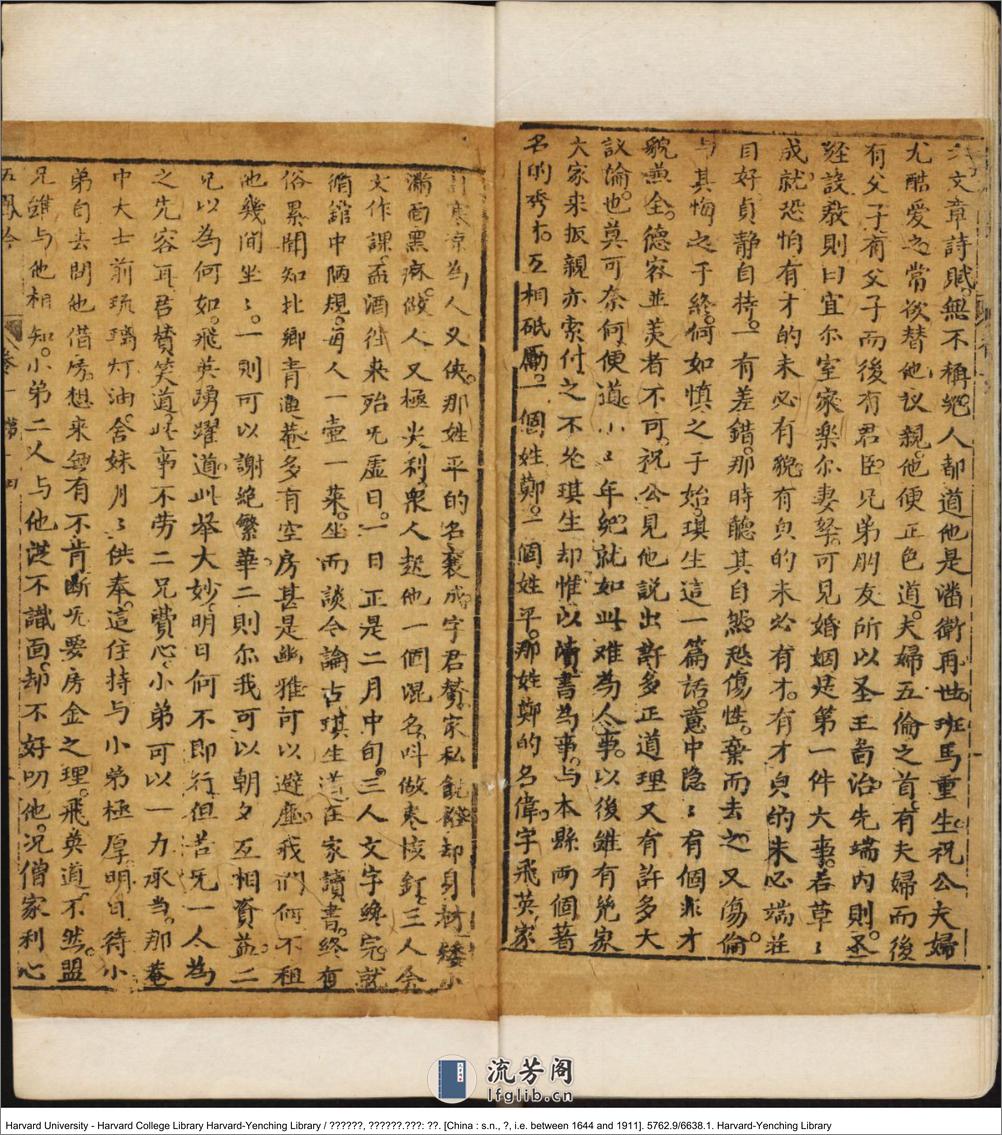 文章詩賦。無不稱絕。人都道他是潘衛再世。班馬重生。祝公夫婦
尤酷愛之。常後替他议親。他便正色道。夫婦五倫之首。有夫婦而後
有父子。有父子而後有君臣兄弟朋友。所以圣王啚治。先端内則。圣
经設敎。則曰宜尔室家。樂尔妻孥。可見婚姻是第一件大事。若草〻
成就。恐怕有才的未必有貌。有貟的未必有才。有才貟的未必端莊
目好。貞静自持。一有差錯。那時聽其自然。恐傷性。棄而去之。又傷倫
与其悔之于終。何如慎之于始。琪生這一篇話。意中隐〻有個非才
貌兼全。德容並美者不可。祝公見他説出許多正道理。又有許多大
议論。也莫可奈何。便道。小〻年紀。就如此难為人事。以後雖有幾家
大家来扳親。亦索付之不论。琪生却惟以讀書為事。与本縣两個著
名的秀才。互相砥礪。一個姓鄭。一個姓平。那姓鄭的名偉。字飛英。家
寒凉。為人又侠。那姓平的名襄成。字君赞。家私饒餘。却身材矮小
满面黑麻。做人又極尖利。衆人起他一個混名。呌做枣核釘。三人会
文作課。盃酒往来。殆旡虚日。一日正是二月中旬。三人文字纔完。就
循館中陋規。每人一壶一菜。坐而談今論古。琪生道。在家讀書。終有
俗累。聞知北鄉青蓮菴多有空房。甚是幽雅。可以避塵。我們何不租
他幾間坐〻。一則可以謝絶繁華。二則尔我可以朝夕互相資益。二
兄以為何如。飛英踴躍道。此举大妙。明日何不即行。但苦旡一人為
之先容耳。君赞笑道。此事不劳二兄費心。小弟可以一力承当。那菴
中大士前琉璃灯油。舍妹月〻供奉。這住持与小弟極厚。明日待小
弟自去問他借房。想来無有不肯。断旡要房金之理。飛英道。不然。盟
兄雖与他相知。小弟二人与他從不識面。却不好叨他。况僧家利心
五鳳吟 卷一 第一回
Harvard University - Harvard College Library Harvard-Yenching Library / ??????, ??????.???: ??. [China : s.n., ?, i.e. between 1644 and 1911]. 5762.9/6638.1. Harvard-Yenching Library
流芳阁
lfglib.cn